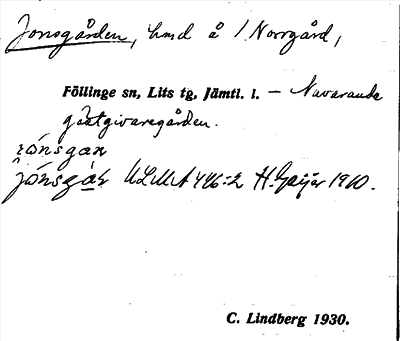 Jonsgården, hmd å 1 Norrgård,
Föllinge sn, Lits tg, Jämtl. l. — Nuvarande
gästgivaregården.
jónsgaṉ H. Geijer 1960.
C. Lindberg 1930.